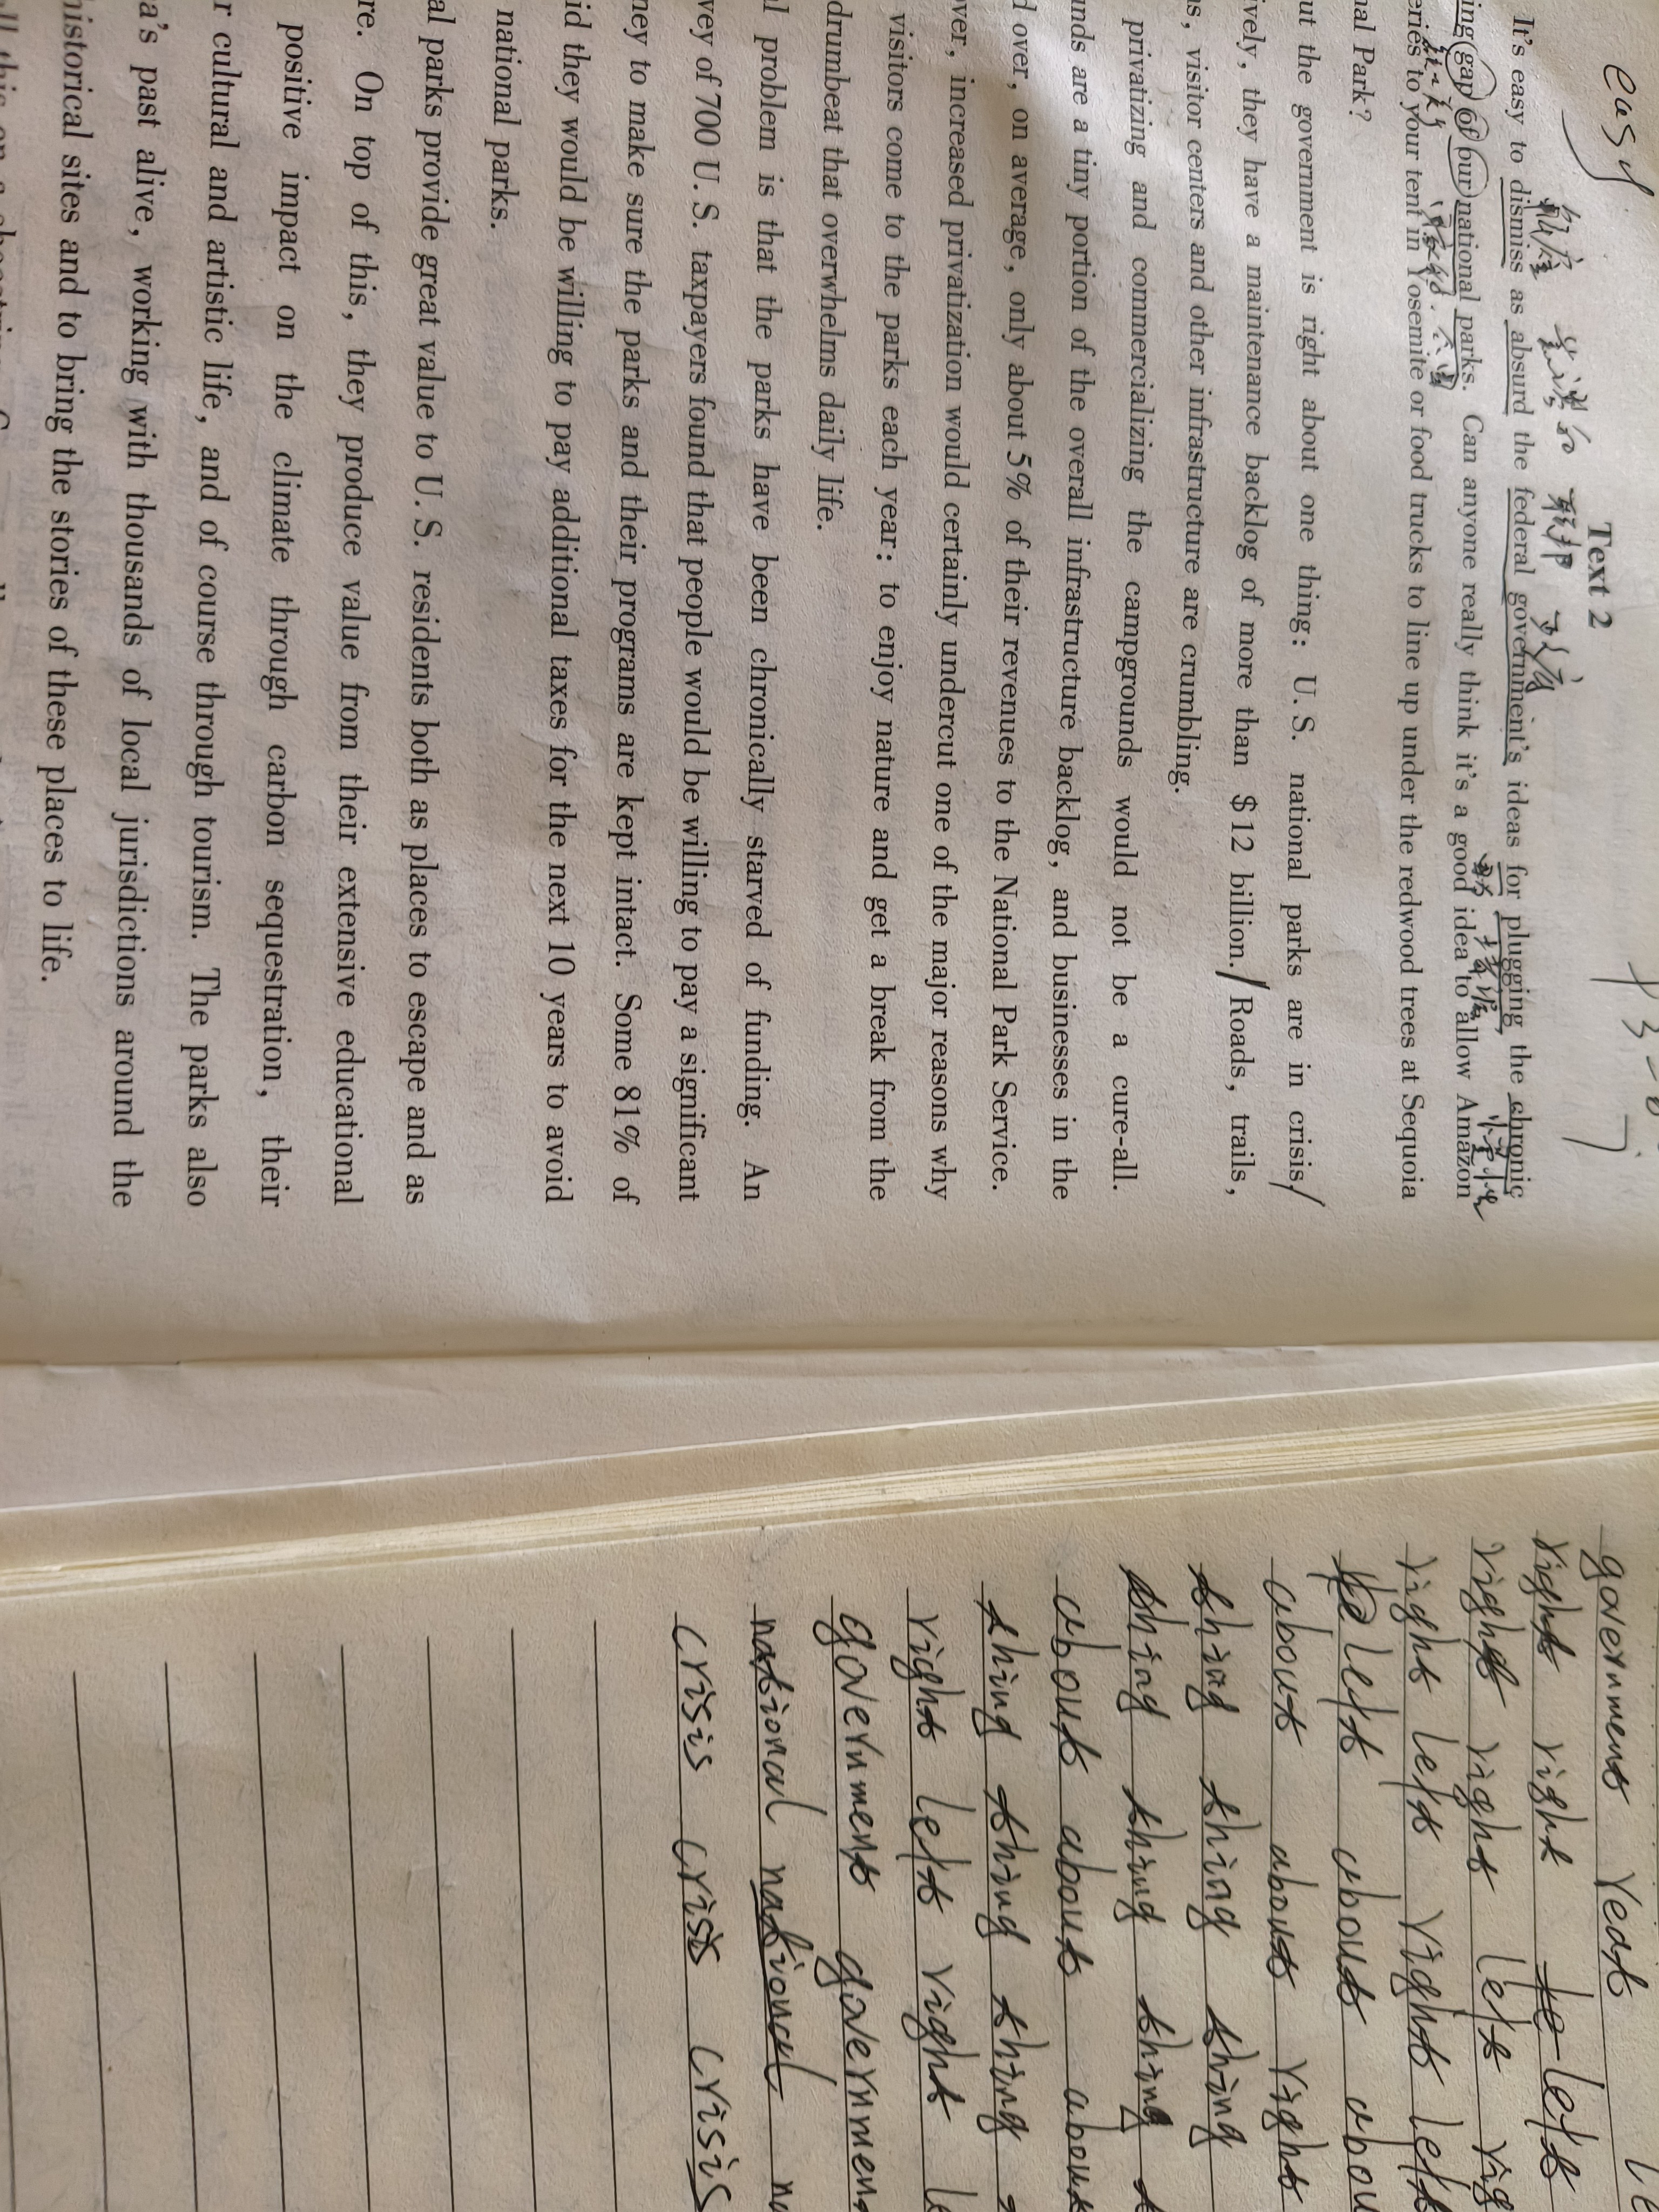 easy
Text 2
It's easy to dismiss as absurd the federal government's ideas for plugging the chronic
ing gap of our national parks. Can anyone really think it's a good idea to allow Amazon
eries to your tent in Yosemite or food trucks to line up under the redwood trees at Sequoia
nal Park?
ut the government is right about one thing: U.S. national parks are in crisis.
ively, they have a maintenance backlog of more than $12 billion. Roads, trails,
s, visitor centers and other infrastructure are crumbling.
privatizing and commercializing the campgrounds would not be a cure-all.
nds are a tiny portion of the overall infrastructure backlog, and businesses in the
d over, on average, only about 5% of their revenues to the National Park Service.
ver, increased privatization would certainly undercut one of the major reasons why
visitors come to the parks each year: to enjoy nature and get a break from the
drumbeat that overwhelms daily life.
l problem is that the parks have been chronically starved of funding. An
vey of 700 U.S. taxpayers found that people would be willing to pay a significant
ney to make sure the parks and their programs are kept intact. Some 81% of
id they would be willing to pay additional taxes for the next 10 years to avoid
national parks.
al parks provide great value to U.S. residents both as places to escape and as
re. On top of this, they produce value from their extensive educational
positive impact on the climate through carbon sequestration, their
r cultural and artistic life, and of course through tourism. The parks also
a's past alive, working with thousands of local jurisdictions around the
historical sites and to bring the stories of these places to life.
government
right right left
right right left rig
right left right left
left about about abou
about about right
thing thing thing
thing thing thing
about about about
thing thing thing
right left right le
government government
national national na
crisis crisis crisis